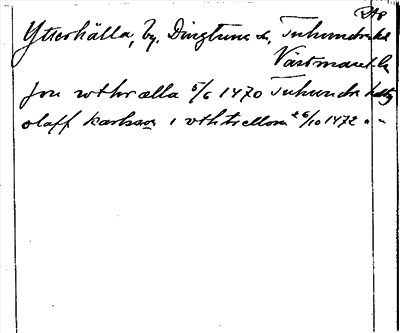 Ytterhälla, by, Dingtuna sn, Tuhundra hd
Västmanl. län
Jon wthrælla 5/6 1470 Tuhundra
olaff karlsson i vthtrellom 26/10 1472 " "